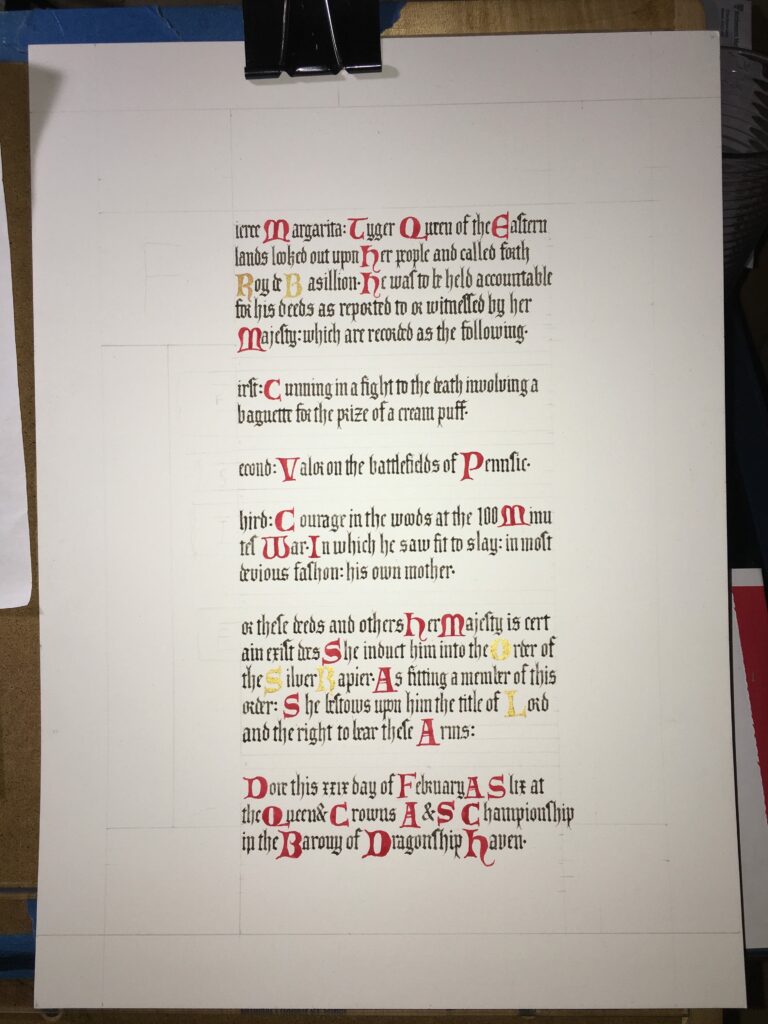 ierce Margarita: Tyger Queen of the Eastern
lands looked out upon Her people and called forth
Roy de Basillion. He was to be held accountable
for his deeds as reported to or witnessed by her
Majesty: which are recorded as the following.
irst: Cunning in a fight to the death involving a
baguette for the prize of a cream puff.
econd: Valor on the battlefields of Pennsic.
hird: Courage in the woods at the 100 Minu
tes War. In which he saw fit to slay: in most
devious fashon: his own mother.
or these deeds and others Her Majesty is cert
ain exist des She induct him into the Order of
the Silver Rapier. As fitting a member of this
order: She bestows upon him the title of Lord
and the right to bear these Arms:
Done this xxix day of February A S lix at
the Queen & Crowns A & S Championship
in the Barony of Dragonship Haven.